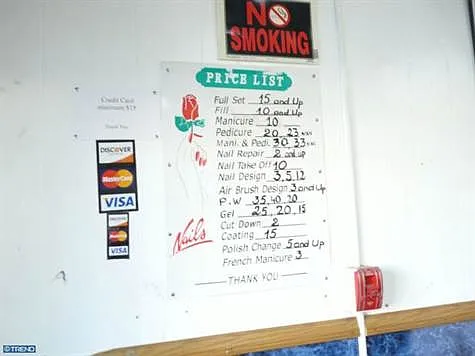 NO
SMOKING
PRICE LIST
Full Set 15 and Up
Fill 10 and Up
Manicure 10
Pedicure 20, 23
Mani. & Pedi. 30, 33
Nail Repair 2 and up
Nail Take Off 10
Nail Design 3, 5, 12
Air Brush Design 3 and Up
P.W 35, 40, 20
Gel 25, 20, 15
Cut Down 2
Coating 15
Polish Change 5 and Up
French Manicure 3
THANK YOU
Nails
Credit Card
minimum $15
Thank You
DISCOVER
MasterCard
VISA
DISCOVER
MasterCard
VISA
© TREND